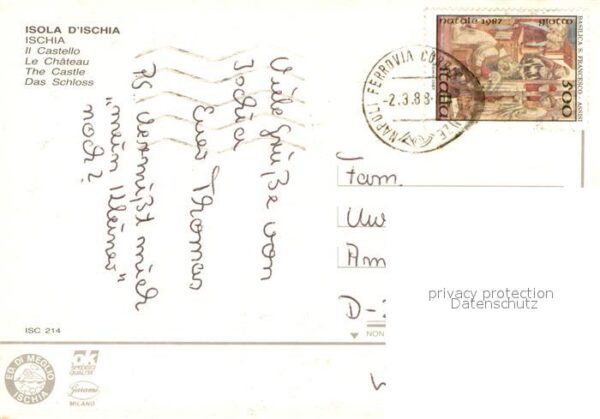 ISOLA D'ISCHIA
ISCHIA
Il Castello
Le Château
The Castle
Das Schloss
Viele Grüße von
Ischia
Euer Thomas
PS. Vermißt mich
"mein Kleiner"
noch?
natale 1987 giotto
BASILICA S. FRANCESCO - ASSISI
italia
500
NAPOLI FERROVIA
-2.3.88-
Fam.
Uw
Am
D-
privacy protection
Datenschutz
NON
ISC 214
ED. DI MEGLIO
ISCHIA
OK
QUALITÀ
Garami
MILANO